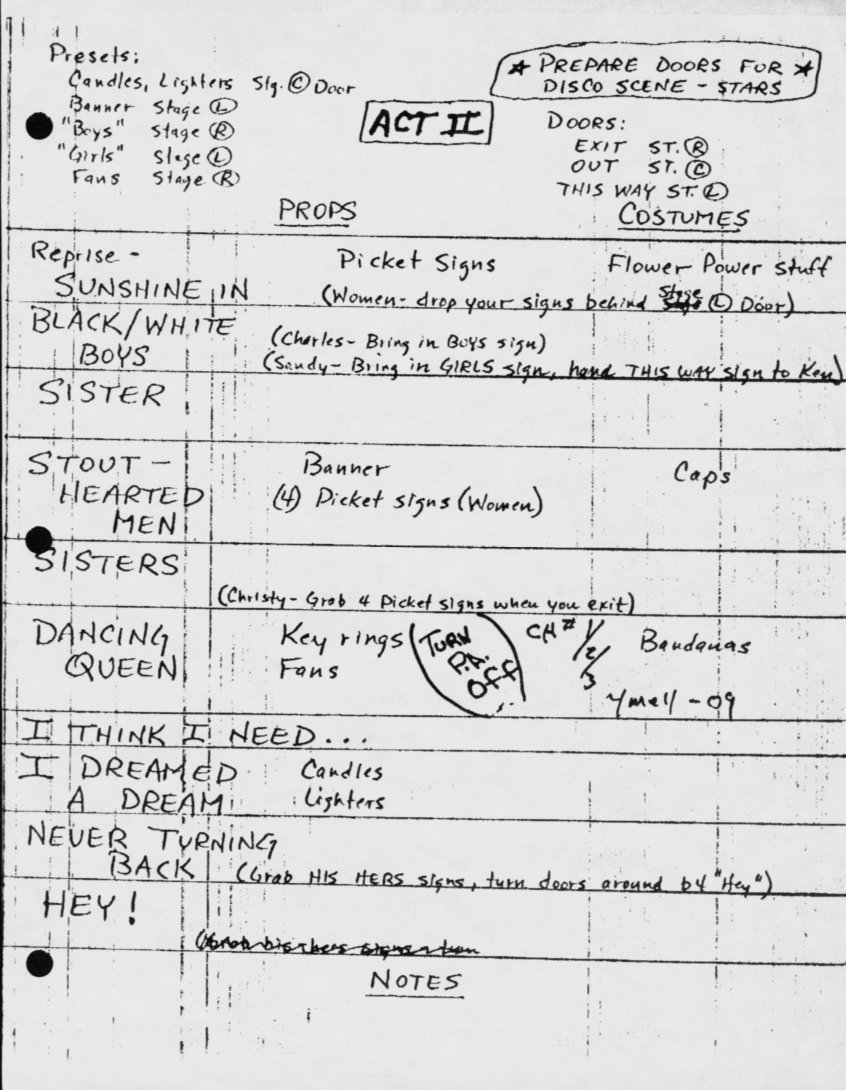 Presets:
Candles, Lighters Stg. Ⓒ Door
Banner Stage Ⓛ
"Boys" Stage Ⓡ
"Girls" Stage Ⓛ
Fans Stage Ⓡ
ACT II
* PREPARE DOORS FOR *
DISCO SCENE - STARS
DOORS:
EXIT ST. Ⓡ
OUT ST. Ⓒ
THIS WAY ST. Ⓛ
PROPS
COSTUMES
Reprise -
SUNSHINE IN
Picket Signs
Flower Power stuff
(Women- drop your signs behind Stage Ⓛ Door)
BLACK/WHITE
BOYS
(Charles- Bring in BOYS sign)
(Sandy- Bring in GIRLS sign, hand THIS WAY sign to Ken)
SISTER
STOUT -
HEARTED
MEN
Banner
(4) Picket signs (Women)
Caps
SISTERS
(Christy- Grab 4 Picket signs when you exit)
DANCING
QUEEN
Key rings
Fans
TURN
P.A.
OFF
CH # 1/
2/
3
Bandanas
- 09
I THINK I NEED...
I DREAMED
A DREAM
Candles
Lighters
NEVER TURNING
BACK
(Grab HIS HERS signs, turn doors around b4 "Hey")
HEY!
NOTES